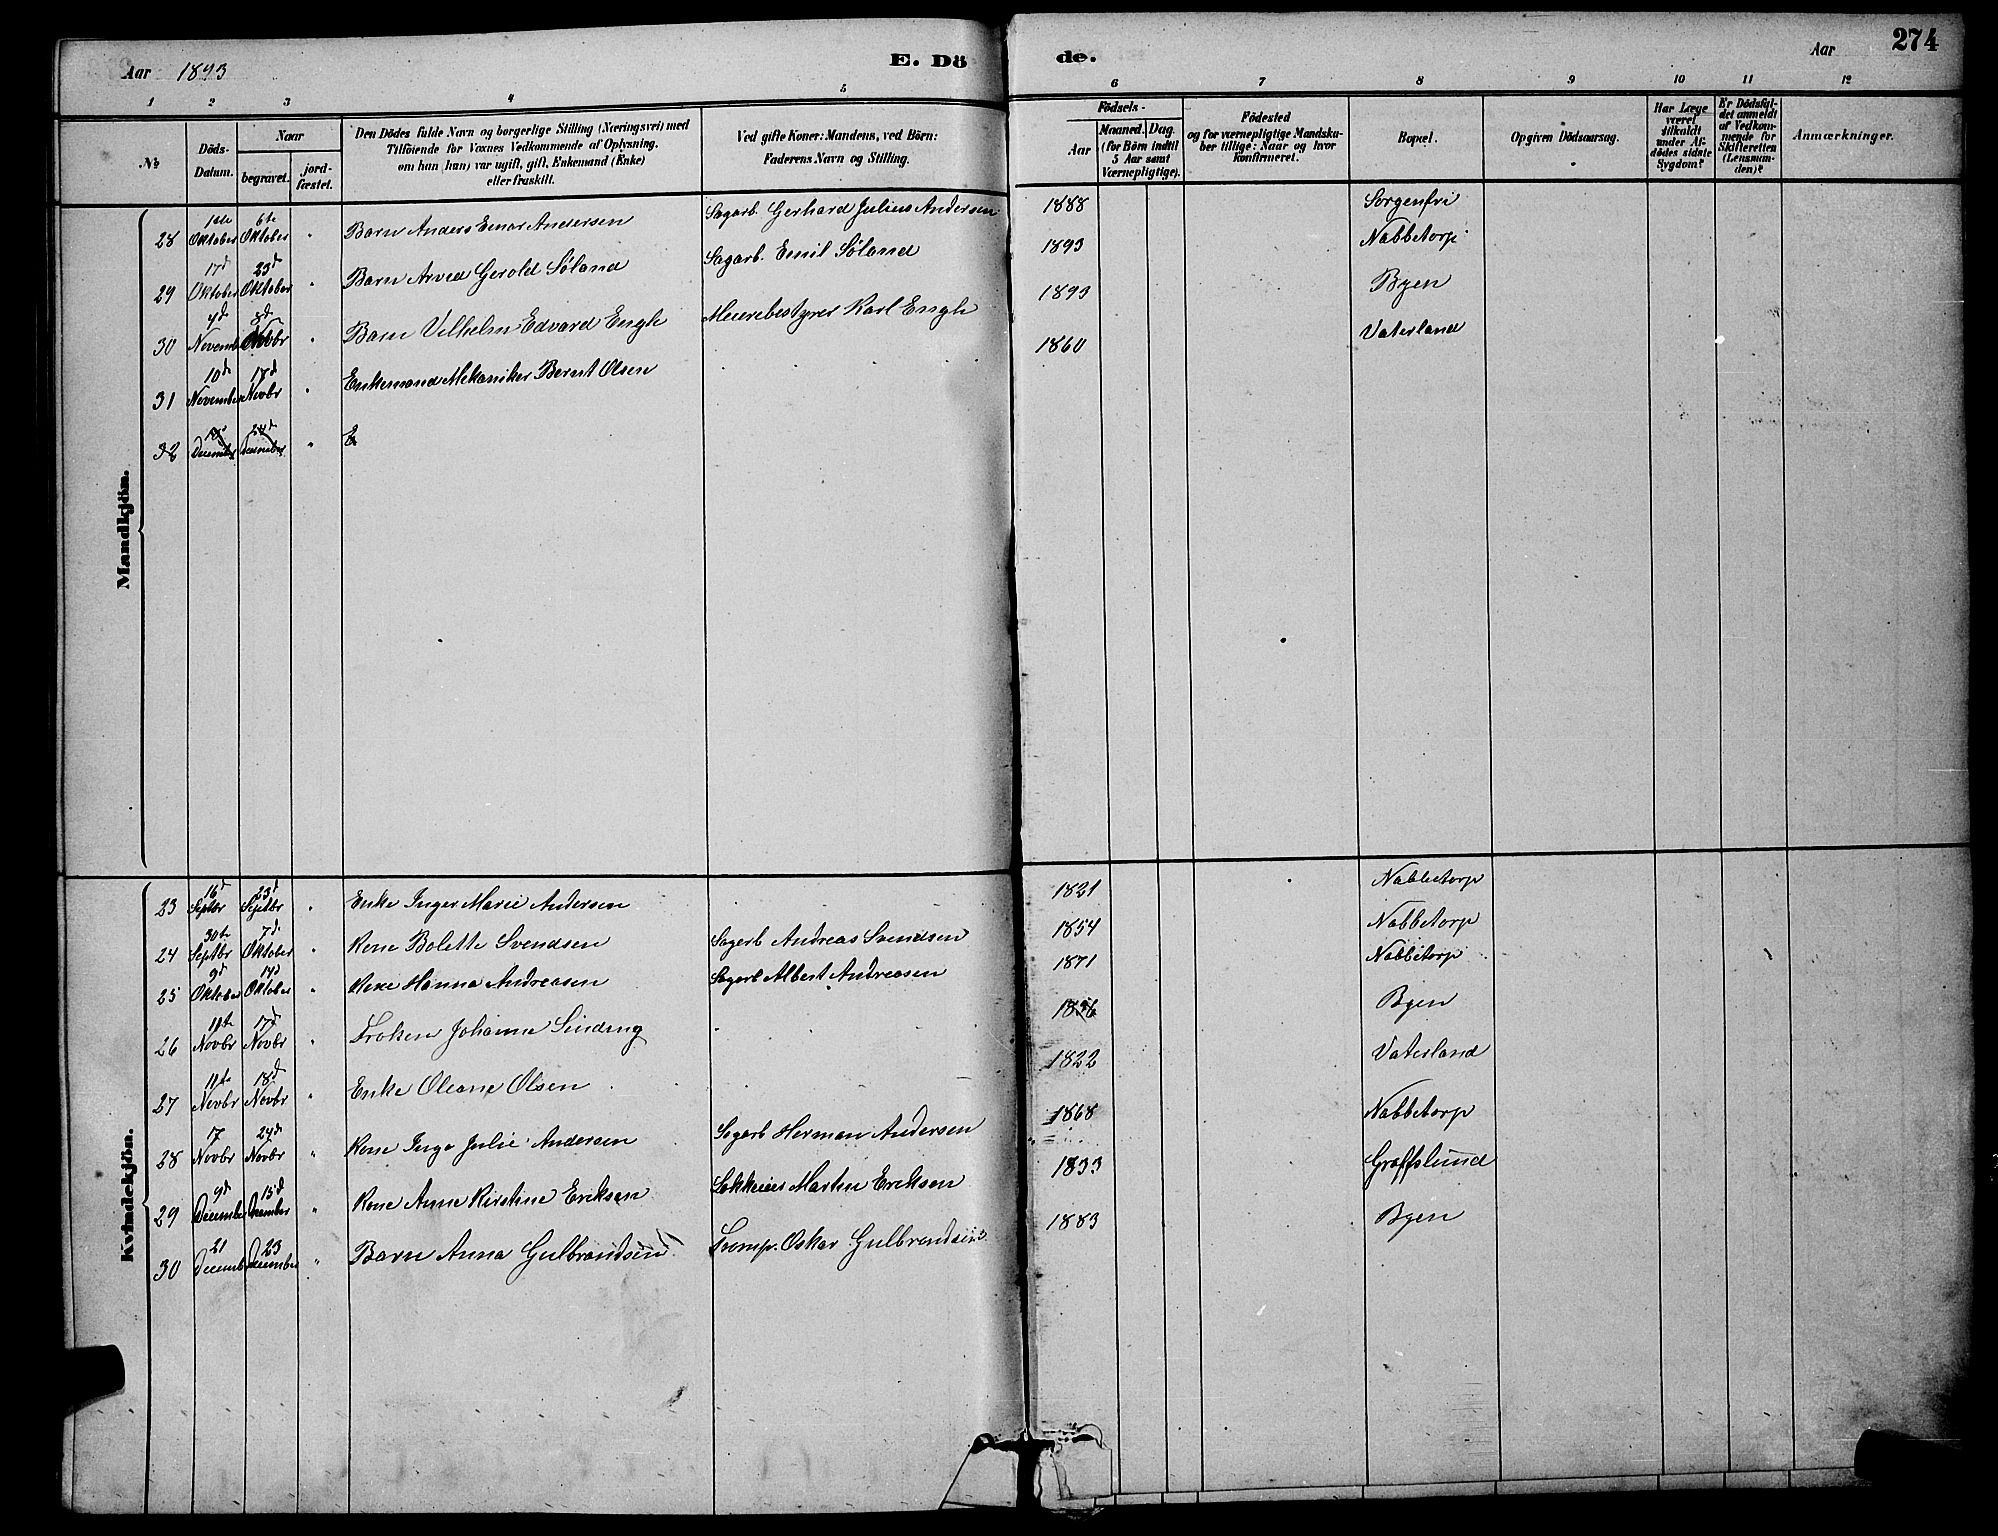 Aar 1893 E. Dö de. Aar 274
1 2 3 4 5 6 7 8 9 10 11 12
№ Döds-Datum. Naar begravet. jord-fæstet. Den Dödes fulde Navn og borgerlige Stilling (Næringsvei) med Tilföiende for Voxnes Vedkommende af Oplysning, om han (hun) var ugift, gift, Enkemand (Enke) eller fraskilt. Ved gifte Koner: Mandens, ved Börn: Faderens Navn og Stilling. Födsels- Aar Maaned. Dag. (for Börn indtil 5 Aar samt Værnepligtige). Födested og for værnepligtige Mandskaber tillige: Naar og hvor konfirmeret. Bopæl. Opgiven Dödsaarsag. Har Læge været tilkaldt under Afdödes sidste Sygdom? Er Dödsfaldet anmeldt af Vedkommende for Skifteretten (Lensmanden)? Anmærkninger.
Mandkjön.
28 Oktober 6te Oktober " Barn Anders Einar Andersen Sagarb. Gerhard Julius Andersen 1888 Sorgenfri
29 17d Oktober 23d Oktober " Barn Arved Gerold Söland Sagarb. Emil Söland 1893 Nabbetorp
30 4d Novemb 8d Novbr " Barn Vilhelm Edvard Engh Meieribestyrer Karl Engh 1893 Byen
31 10d November 17d Novbr " Enkemand Mekaniker Bernt Olsen " 1860 Vaterland
32 December 24d December " E
Kvindekjön.
23 16d Septbr 23d Septbr " Enke Inger Marie Andersen " 1821 Nabbetorp
24 30te Septbr 7d Oktober " Kone Bolette Svendsen Sagarb Andreas Svendsen 1854 Nabbetorp
25 9d Oktober 14d Oktober " Kone Hanna Andreasen Sagarb Albert Andreasen 1871 Nabbetorp
26 11te Novbr 17d Novbr " Frøken Johanne Sinding " Byen
27 11te Novbr 18d Novbr " Enke Oleane Olsen " 1822 Vaterland
28 17 Novbr 24d Novbr " Kone Inga Julie Andersen Sagarb Herman Andersen 1868 Nabbetorp
29 9d December 15d December " Kone Anne Kirstine Eriksen Martin Eriksen 1833 Graffslund
30 21 Decemb 23 December " Barn Anna Gulbrandsen Oskar Gulbrandsen 1883 Byen